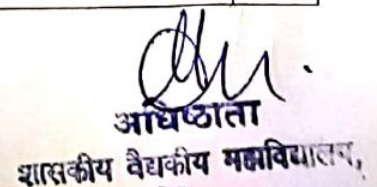 अधिष्ठाता
शासकीय वैद्यकीय महाविद्यालय,